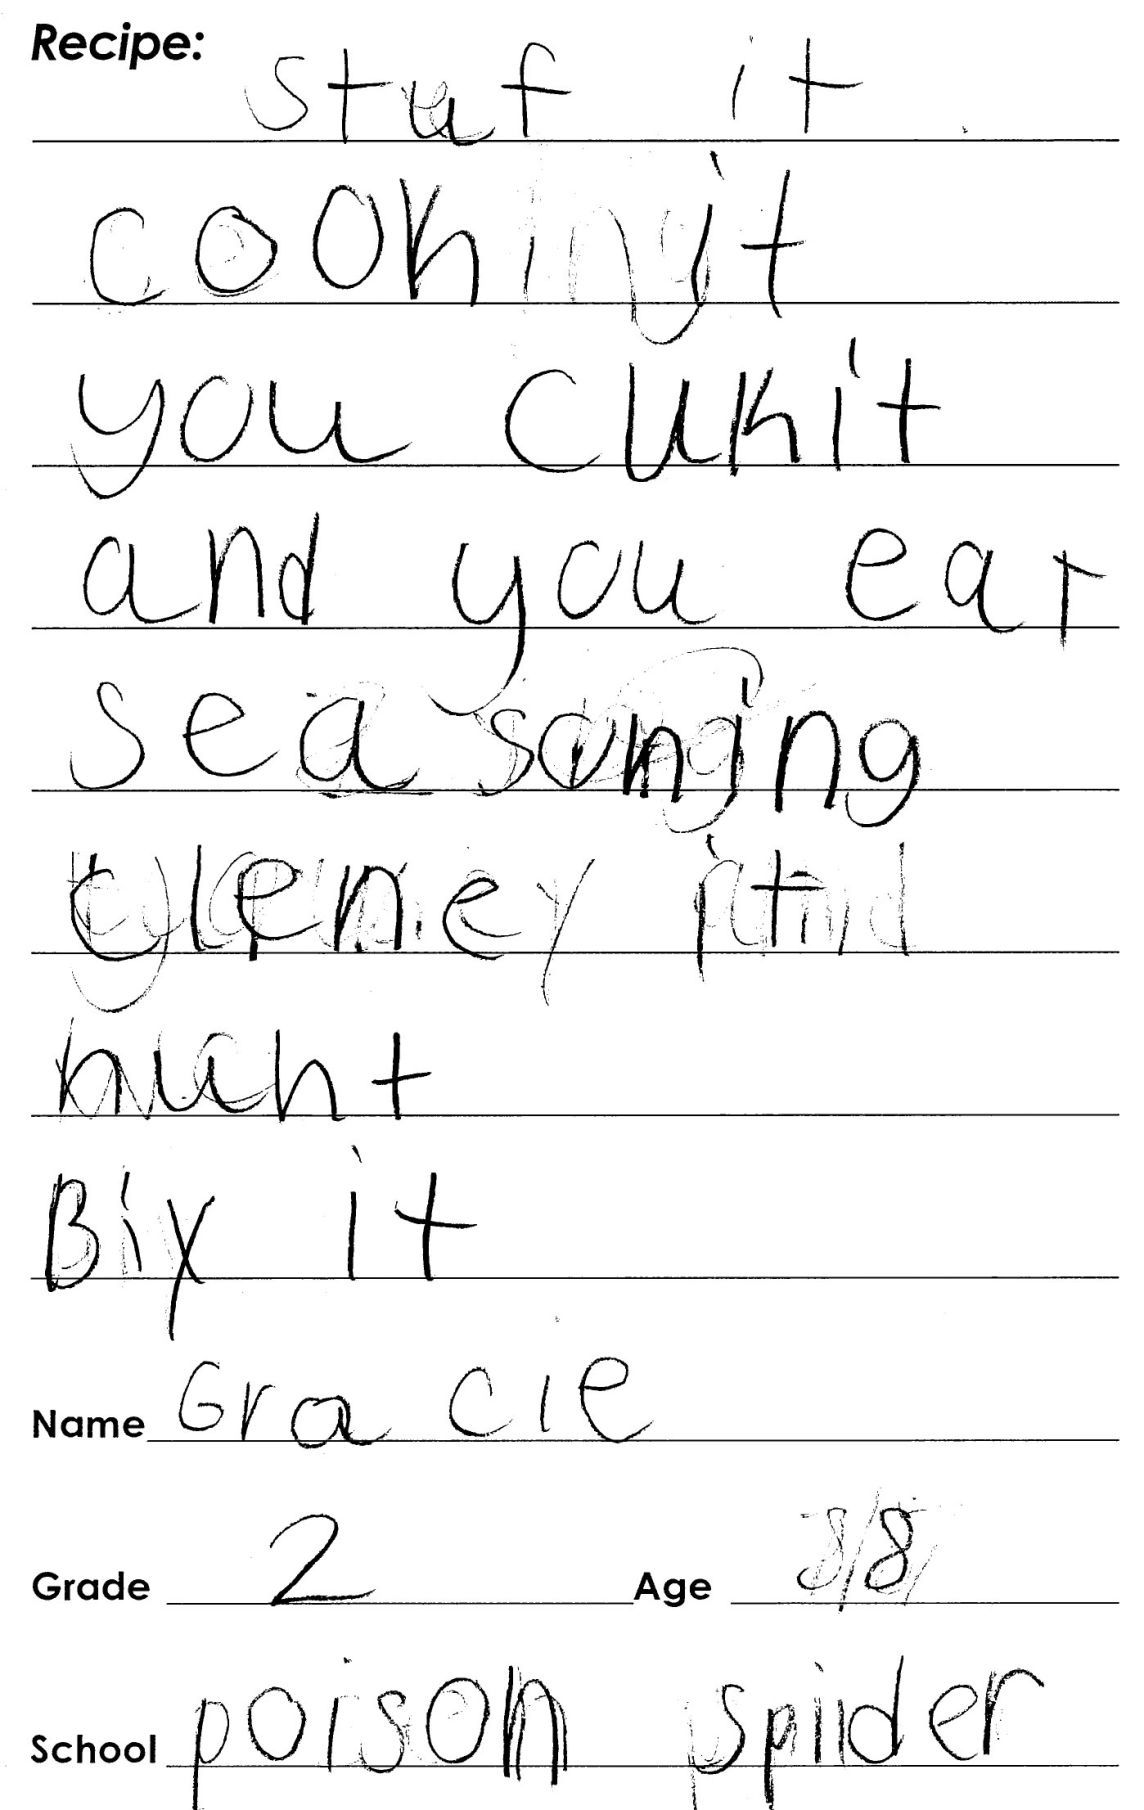 Recipe:
stuf it
cook it
you cukit
and you eat
sea soning
clener it
hunt
Bix it
Name Gracie
Grade 2 Age 8
School poison spider